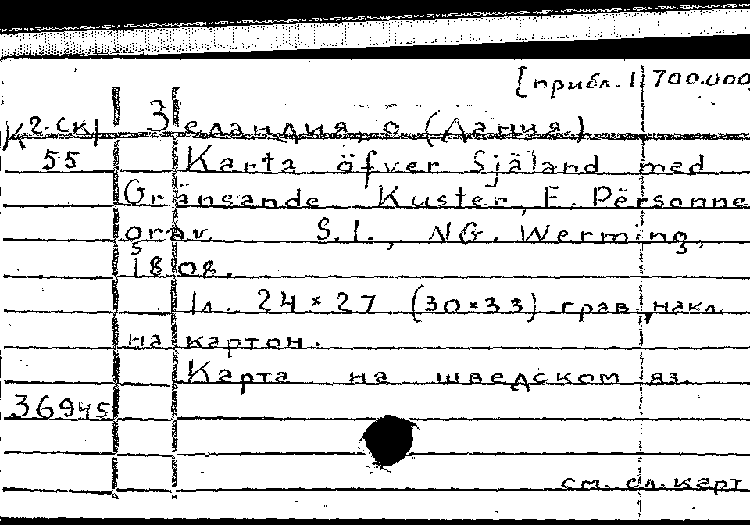 [прибл. 1:700.000
К2-Ск/ Зеландия, о. (Дания)
55 Karta öfver Själand med
Gränsande Kuster, E. Përsonne
grav. S.l., NG. Werming,
1808.
1л. 24×27 (30×33) грав., накл.
на картон.
Карта на шведском яз.
36945
см. сл. карт.